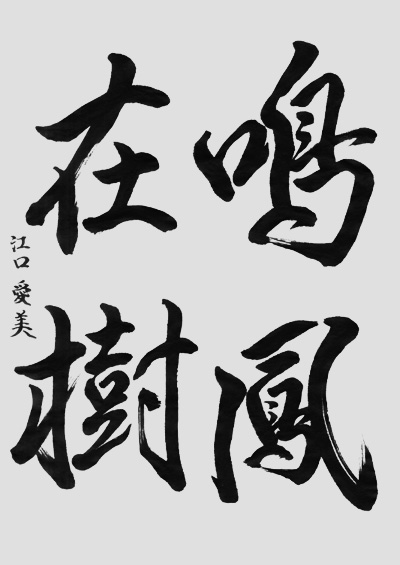 鳴鳳
在樹
江口愛美